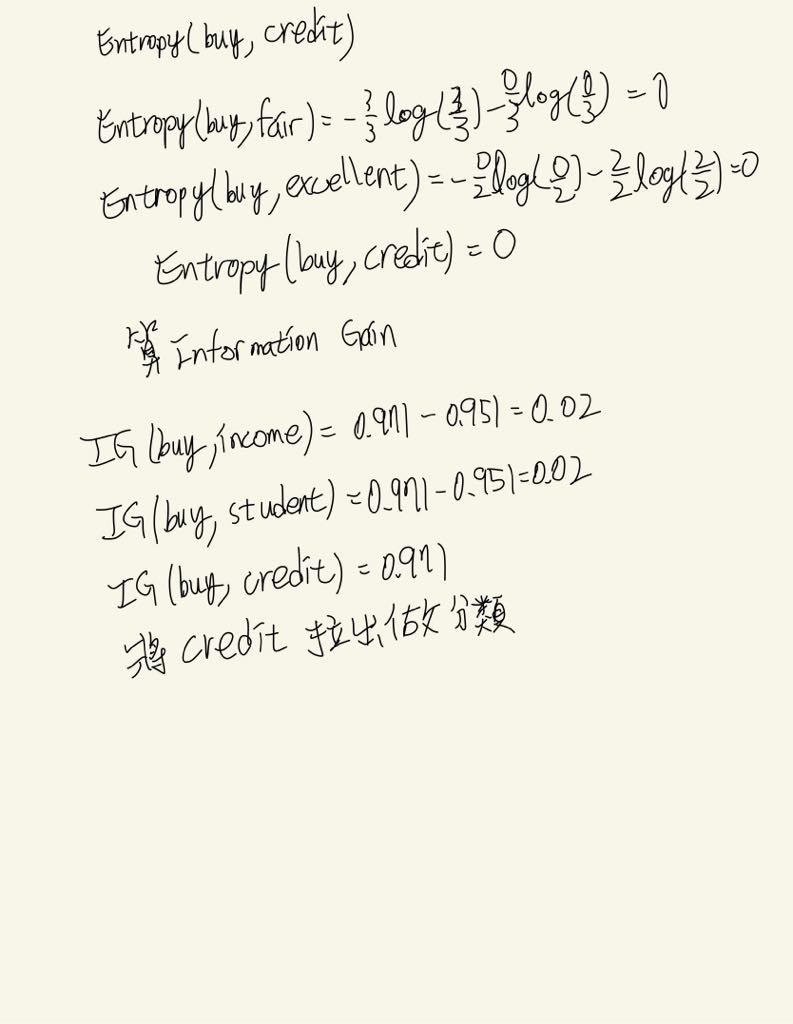 Entropy(buy, credit)
Entropy(buy, fair) = -3/3 log(3/3) - 0/3 log(0/3) = 0
Entropy(buy, excellent) = -0/2 log(0/2) - 2/2 log(2/2) = 0
Entropy(buy, credit) = 0
算 Information Gain
IG(buy, income) = 0.971 - 0.951 = 0.02
IG(buy, student) = 0.971 - 0.951 = 0.02
IG(buy, credit) = 0.971
將 credit 拉出做分類